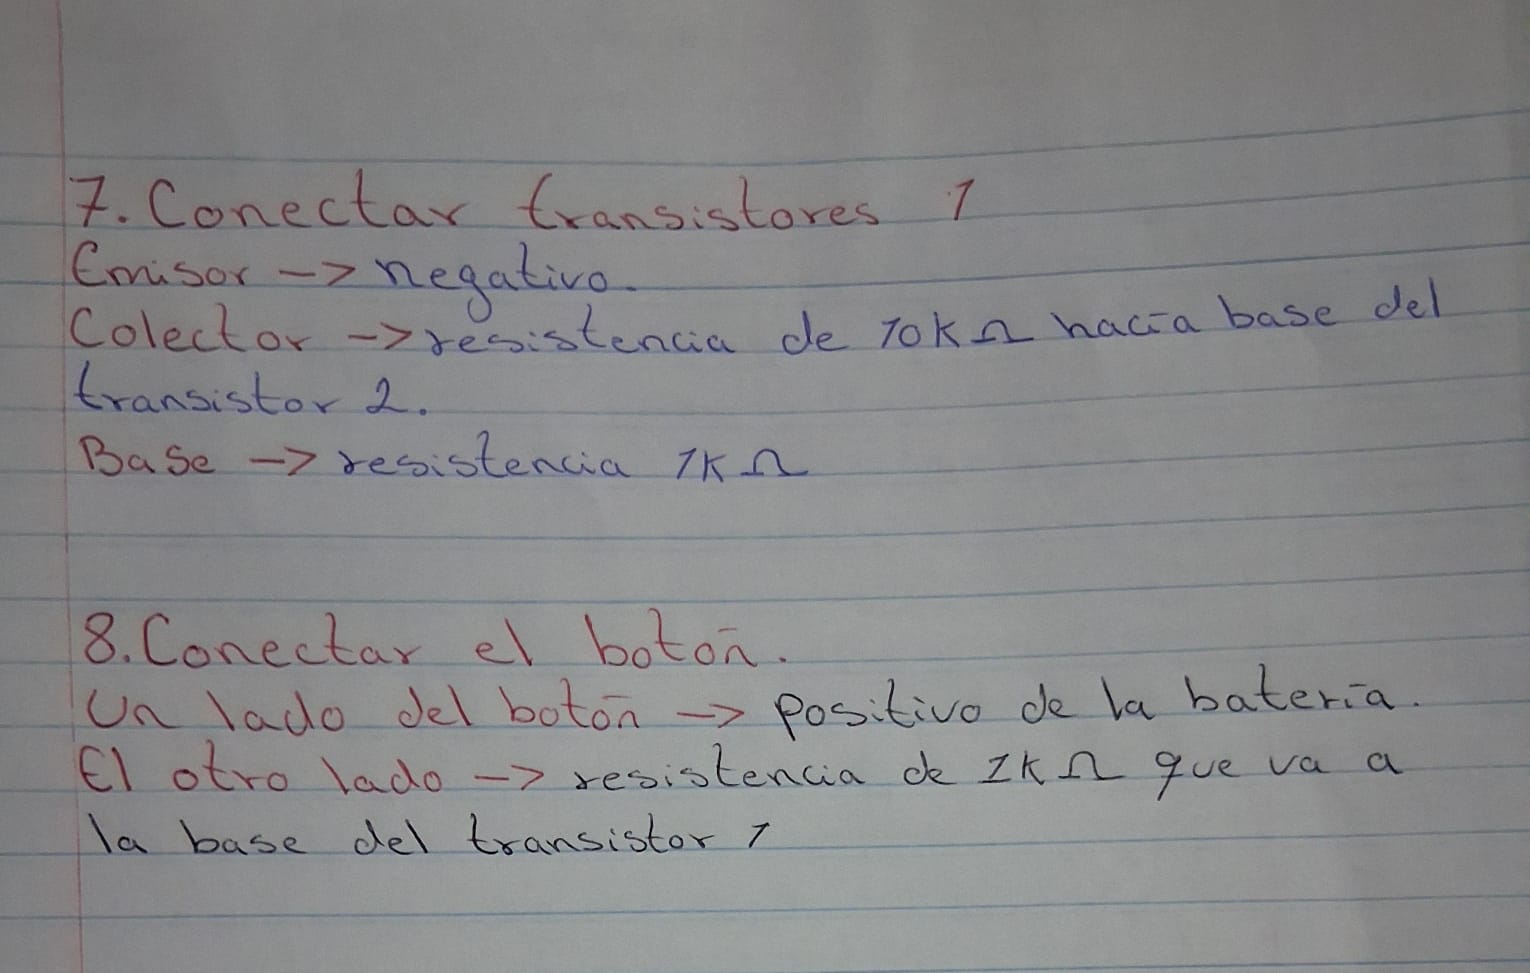 7. Conectar transistores 1
Emisor -> negativo.
Colector -> resistencia de 10kΩ hacía base del
transistor 2.
Base -> resistencia 1kΩ
8. Conectar el botón.
Un lado del botón -> positivo de la batería.
El otro lado -> resistencia de 1kΩ que va a
la base del transistor 1